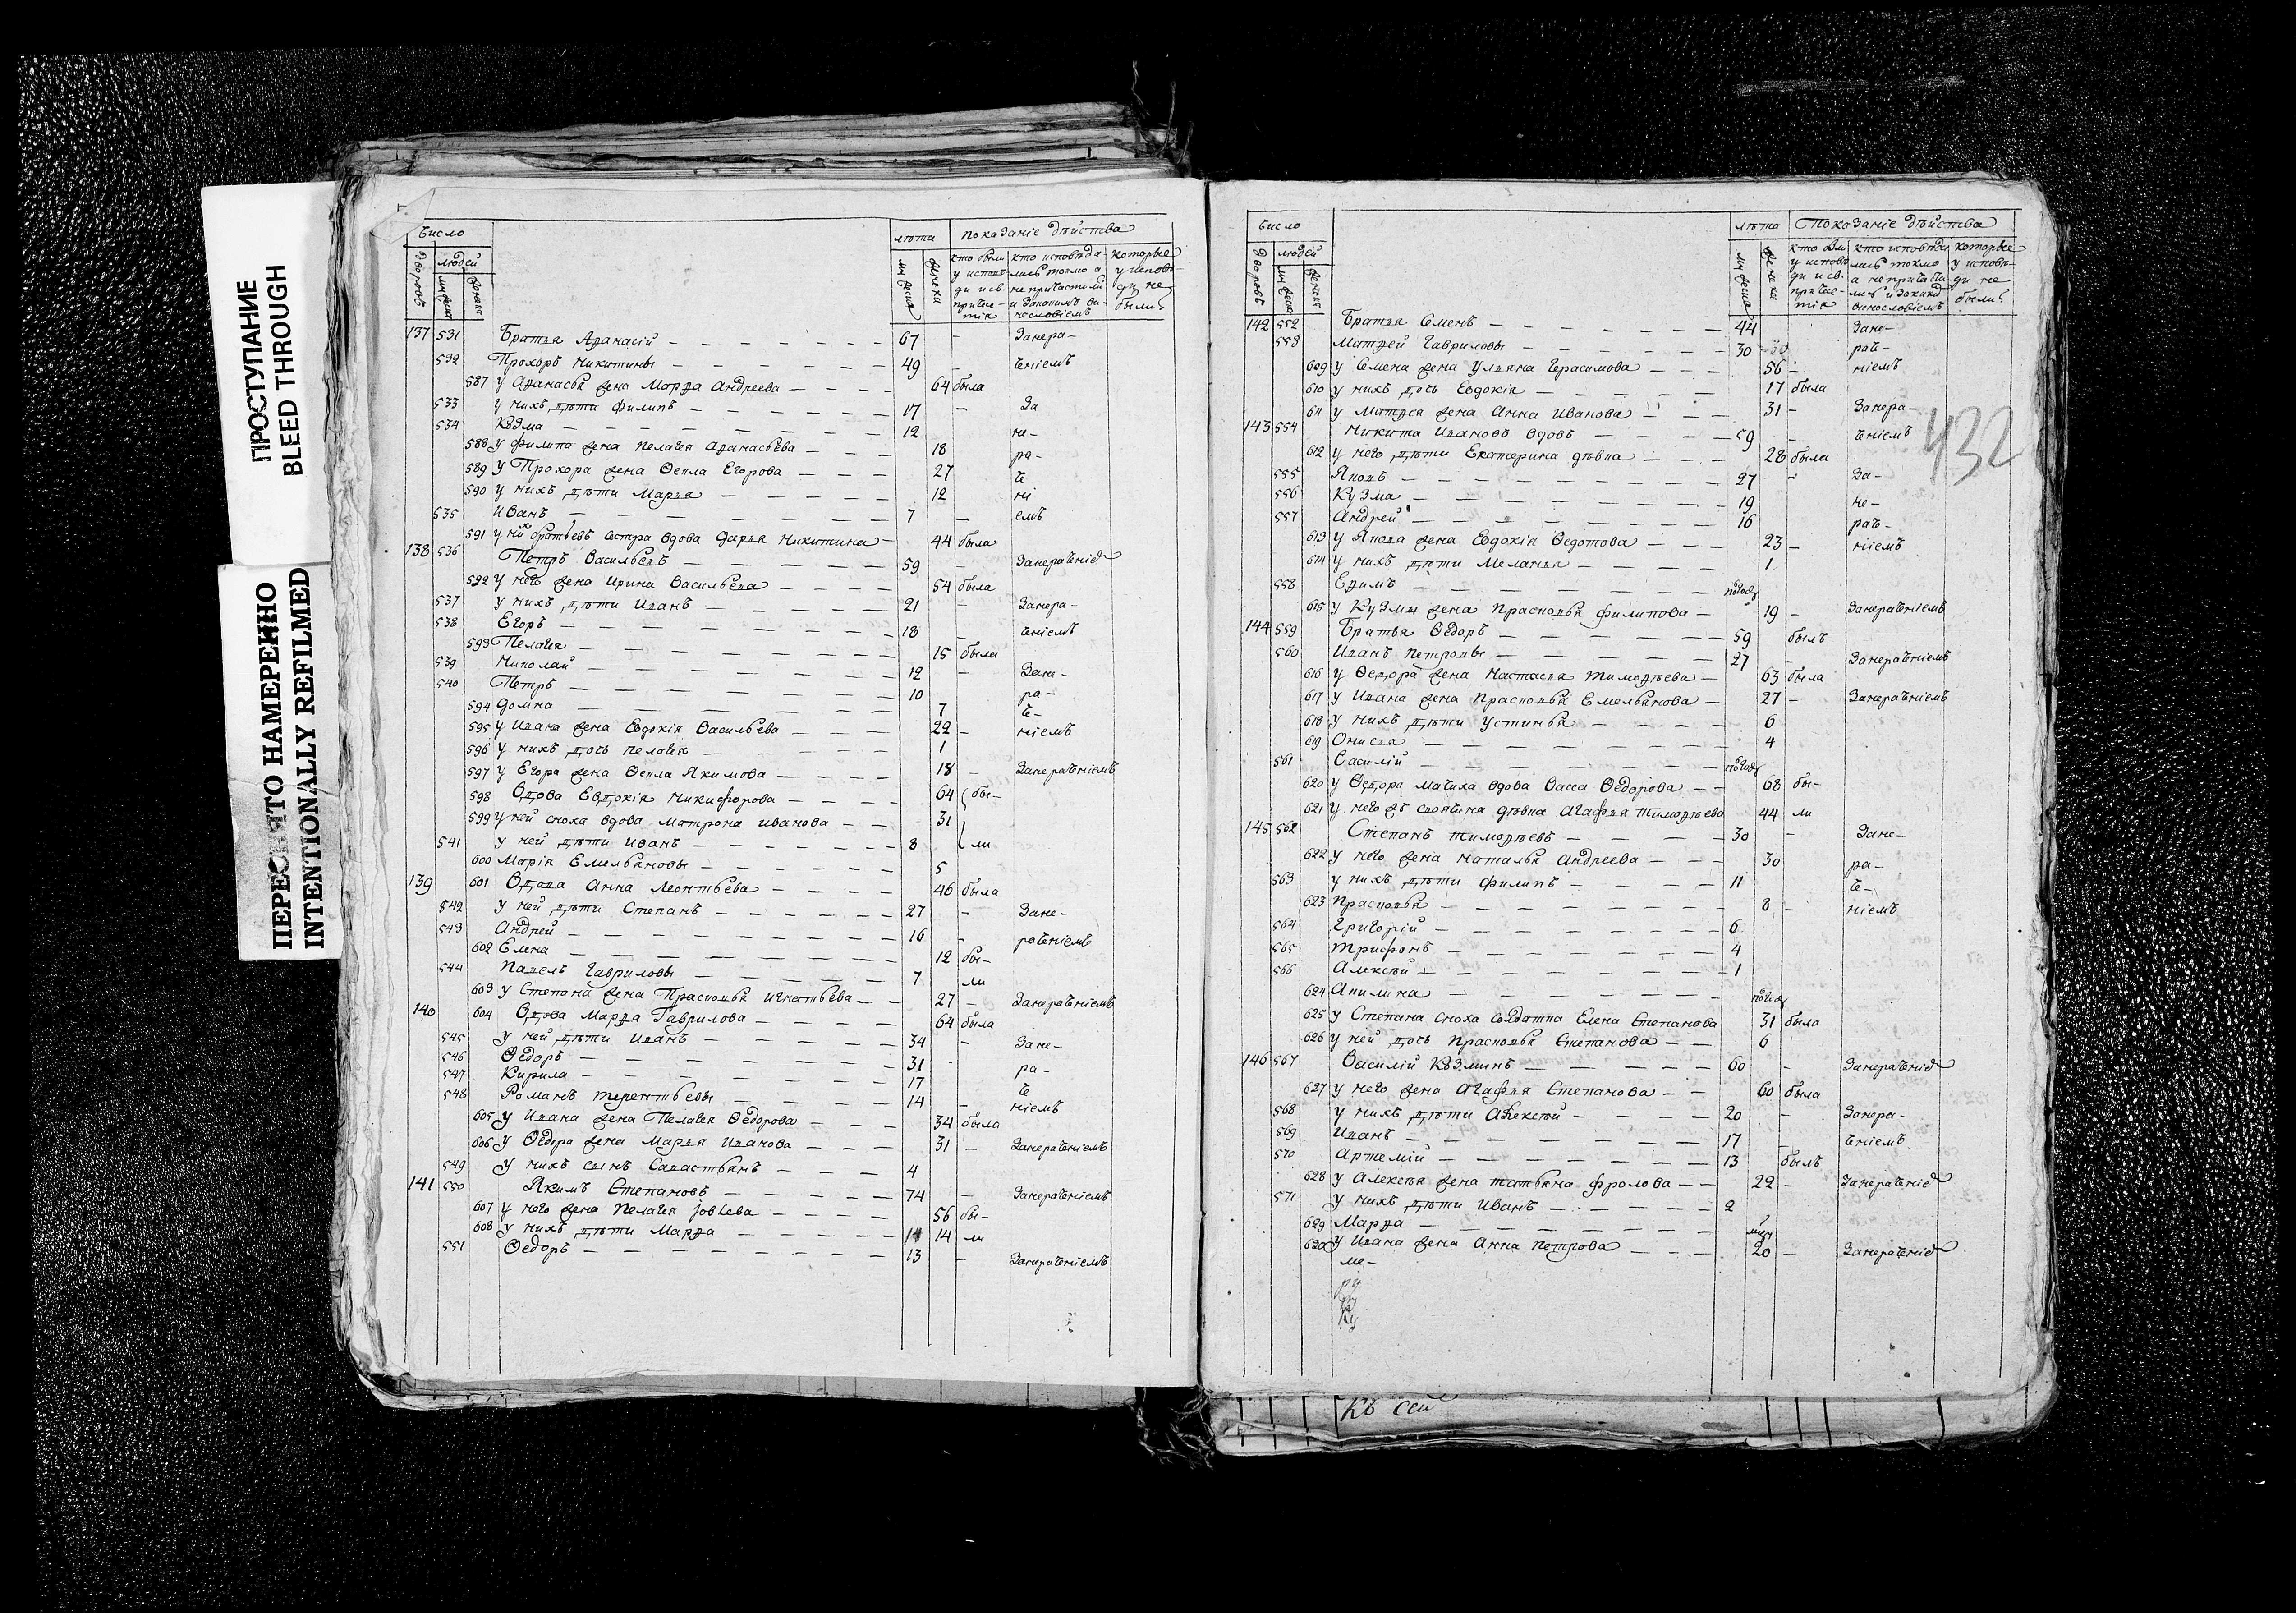 ПРОСТУПАНИЕ
BLEED THROUGH
ПЕРЕСНЯТО НАМЕРЕННО
INTENTIONALLY REFILMED
Число лѣта показаніе дѣйства
дворовъ людей мужеска женска
кто были у исповѣди и св. причас-тія
кто исповѣда-лись токмо а не причастились
которые у исповѣди не были
137 531 Братья Афанасій 67 - Занера-
532 Прохоръ Никитины 49 ченіемъ
587 У Афанасья жена Марфа Андреева 64 была
533 У нихъ дѣти Филипъ 17 - За
534 Козма 12 не-
588 У Филипа жена Пелагея Афанасьева 18 ра-
589 У Прохора жена Ѳекла Егорова 27 че
590 У нихъ дѣти Марья 12 ні
535 Иванъ 7 - емъ
591 У нихъ братьевъ сестра вдова Дарья Никитина 44 была
138 536 Петръ Васильевъ 59 - Занераченіе
592 У него жена Ирина Васильева 54 была
537 У нихъ дѣти Иванъ 21 - Занера-
538 Егоръ 18 - ченіемъ
593 Пелагея 15 была
539 Николай 12 - Зане-
540 Петръ 10 ра-
594 Домна 7 че-
595 У Ивана жена Евдокія Васильева 22 - ніемъ
596 У нихъ дочь Пелагея 1
597 У Егора жена Ѳекла Якимова 18 - Занераченіемъ
598 Вдова Евдокія Никифорова 64 бы-
599 У ней сноха вдова Матрона Иванова 31
541 У ней дѣти Иванъ 8 ли
600 Марія Емельяновы 5
139 601 Вдова Анна Леонтьева 46 была
542 У ней дѣти Степанъ 27 - Зане-
543 Андрей 16 - раченіемъ
602 Елена 12 бы-
544 Павелъ Гавриловы 7 ли
603 У Степана жена Прасковья Игнатьева 27 - Занераченіемъ
140 604 Вдова Марфа Гаврилова 64 была
545 У ней дѣти Иванъ 34 - Зане-
546 Ѳедоръ 31 ра-
547 Кирила 17 че
548 Романъ Терентьевы 14 - ніемъ
605 У Ивана жена Пелагея Ѳедорова 34 была
606 У Ѳедора жена Марья Иванова 31 - Занераченіемъ
549 У нихъ сынъ Савастьянъ 4
141 550 Якимъ Степановъ 74 - Занераченіемъ
607 У него жена Пелагея Іовлева 56 бы-
608 У нихъ дѣти Марфа 14 ли
551 Ѳедоръ 13 - Занераченіемъ
Число лѣта Показаніе дѣйства
дворовъ людей мужеска женска
142 552 Братья Семенъ 44 Зане-
553 Матфей Гавриловы 30 раче-
609 У Семена жена Ульяна Герасимова 56 - ніемъ
610 У нихъ дочь Евдокія 17 была
611 У Матфея жена Анна Иванова 31 - Занера-
143 554 Никита Ивановъ вдовъ 59 - ченіемъ
432
612 У него дѣти Екатерина дѣвка 28 была
555 Яковъ 27 - За-
556 Кузма 19 не-
557 Андрей 16 раче-
613 У Якова жена Евдокія Ѳедотова 23 - ніемъ
614 У нихъ дѣти Меланья 1
558 Ефимъ полгода
615 У Кузмы жена Прасковья Филипова 19 - Занераченіемъ
144 559 Братья Ѳедоръ 59 былъ
560 Иванъ Петровы 27 - Занераченіемъ
616 У Ѳедора жена Настасья Тимофѣева 63 была
617 У Ивана жена Прасковья Емельянова 27 - Занераченіемъ
618 У нихъ дѣти Устинья 6
619 Онисья 4
561 Василій полгода
620 У Ѳедора мачиха вдова Васса Ѳедорова 68 бы-
621 У него дѣвка Агафья Тимофѣева 44 ли
145 562 Степанъ Тимофѣевъ 30 - Зане-
622 У него жена Наталья Андреева 30 ра-
563 У нихъ дѣти Филипъ 11 че-
623 Прасковья 8 - ніемъ
564 Григорій 6
565 Трифонъ 4
566 Алексѣй 1
624 Акилина полгода
625 У Степана сноха солдатка Елена Степанова 31 была
626 У ней дочь Прасковья Степанова 6
146 567 Василій Козминъ 60 - Занераченіе
627 У него жена Агафья Степанова 60 была
568 У нихъ дѣти Алексѣй 20 - Занера-
569 Иванъ 17 - ченіемъ
570 Артемій 13 былъ
628 У Алексѣя жена Татьяна Фролова 22 - Занераченіе
571 У нихъ дѣти Иванъ 2
629 Марфа
630 У Ивана жена Анна Петрова 20 - Занераченіе
ме-